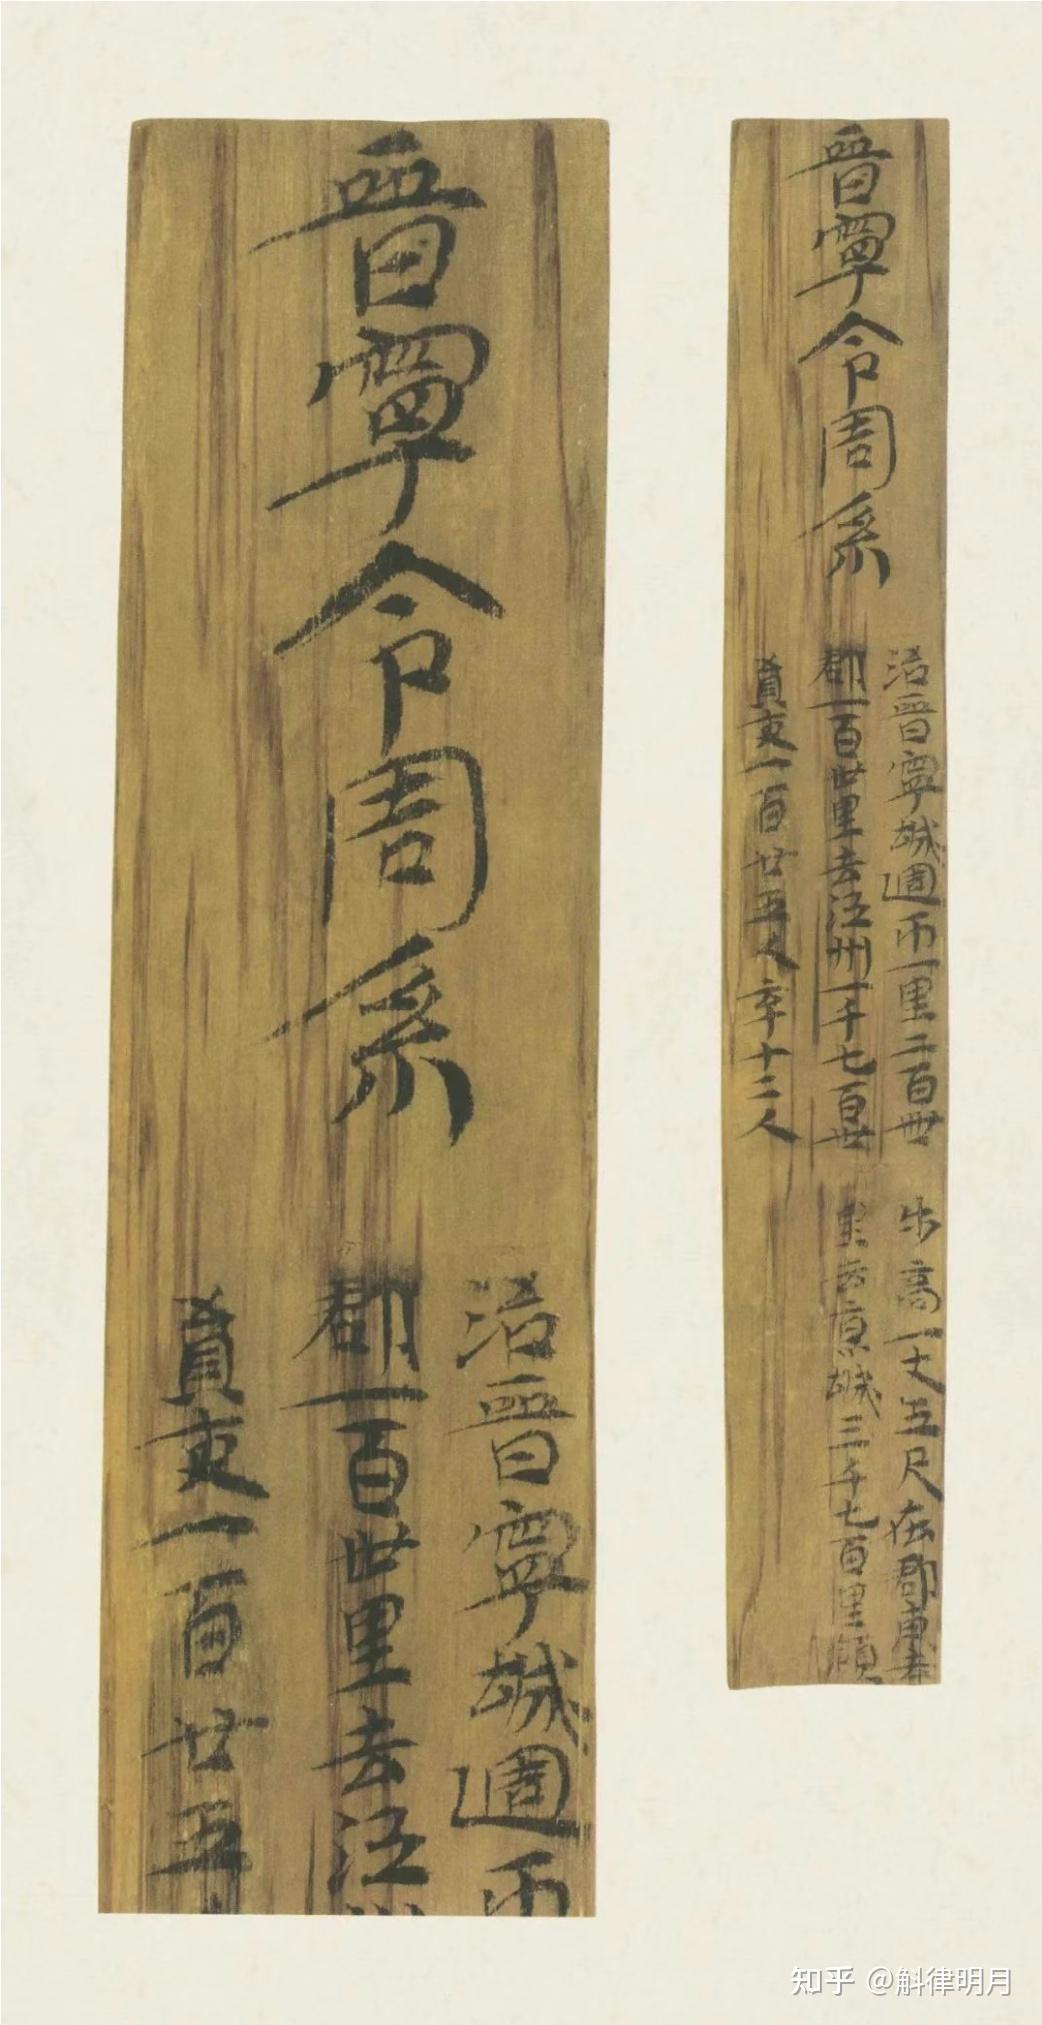 晉寧令周系
治晉寧城週帀
郡一百卅里去江
員吏一百廿五
晉寧令周系
治晉寧城週帀一里二百卌
步高一丈五尺在郡東去
郡一百卅里去江州一千七百卅
里去京城三千七百里領
員吏一百廿五人卒十二人
知乎 @斛律明月